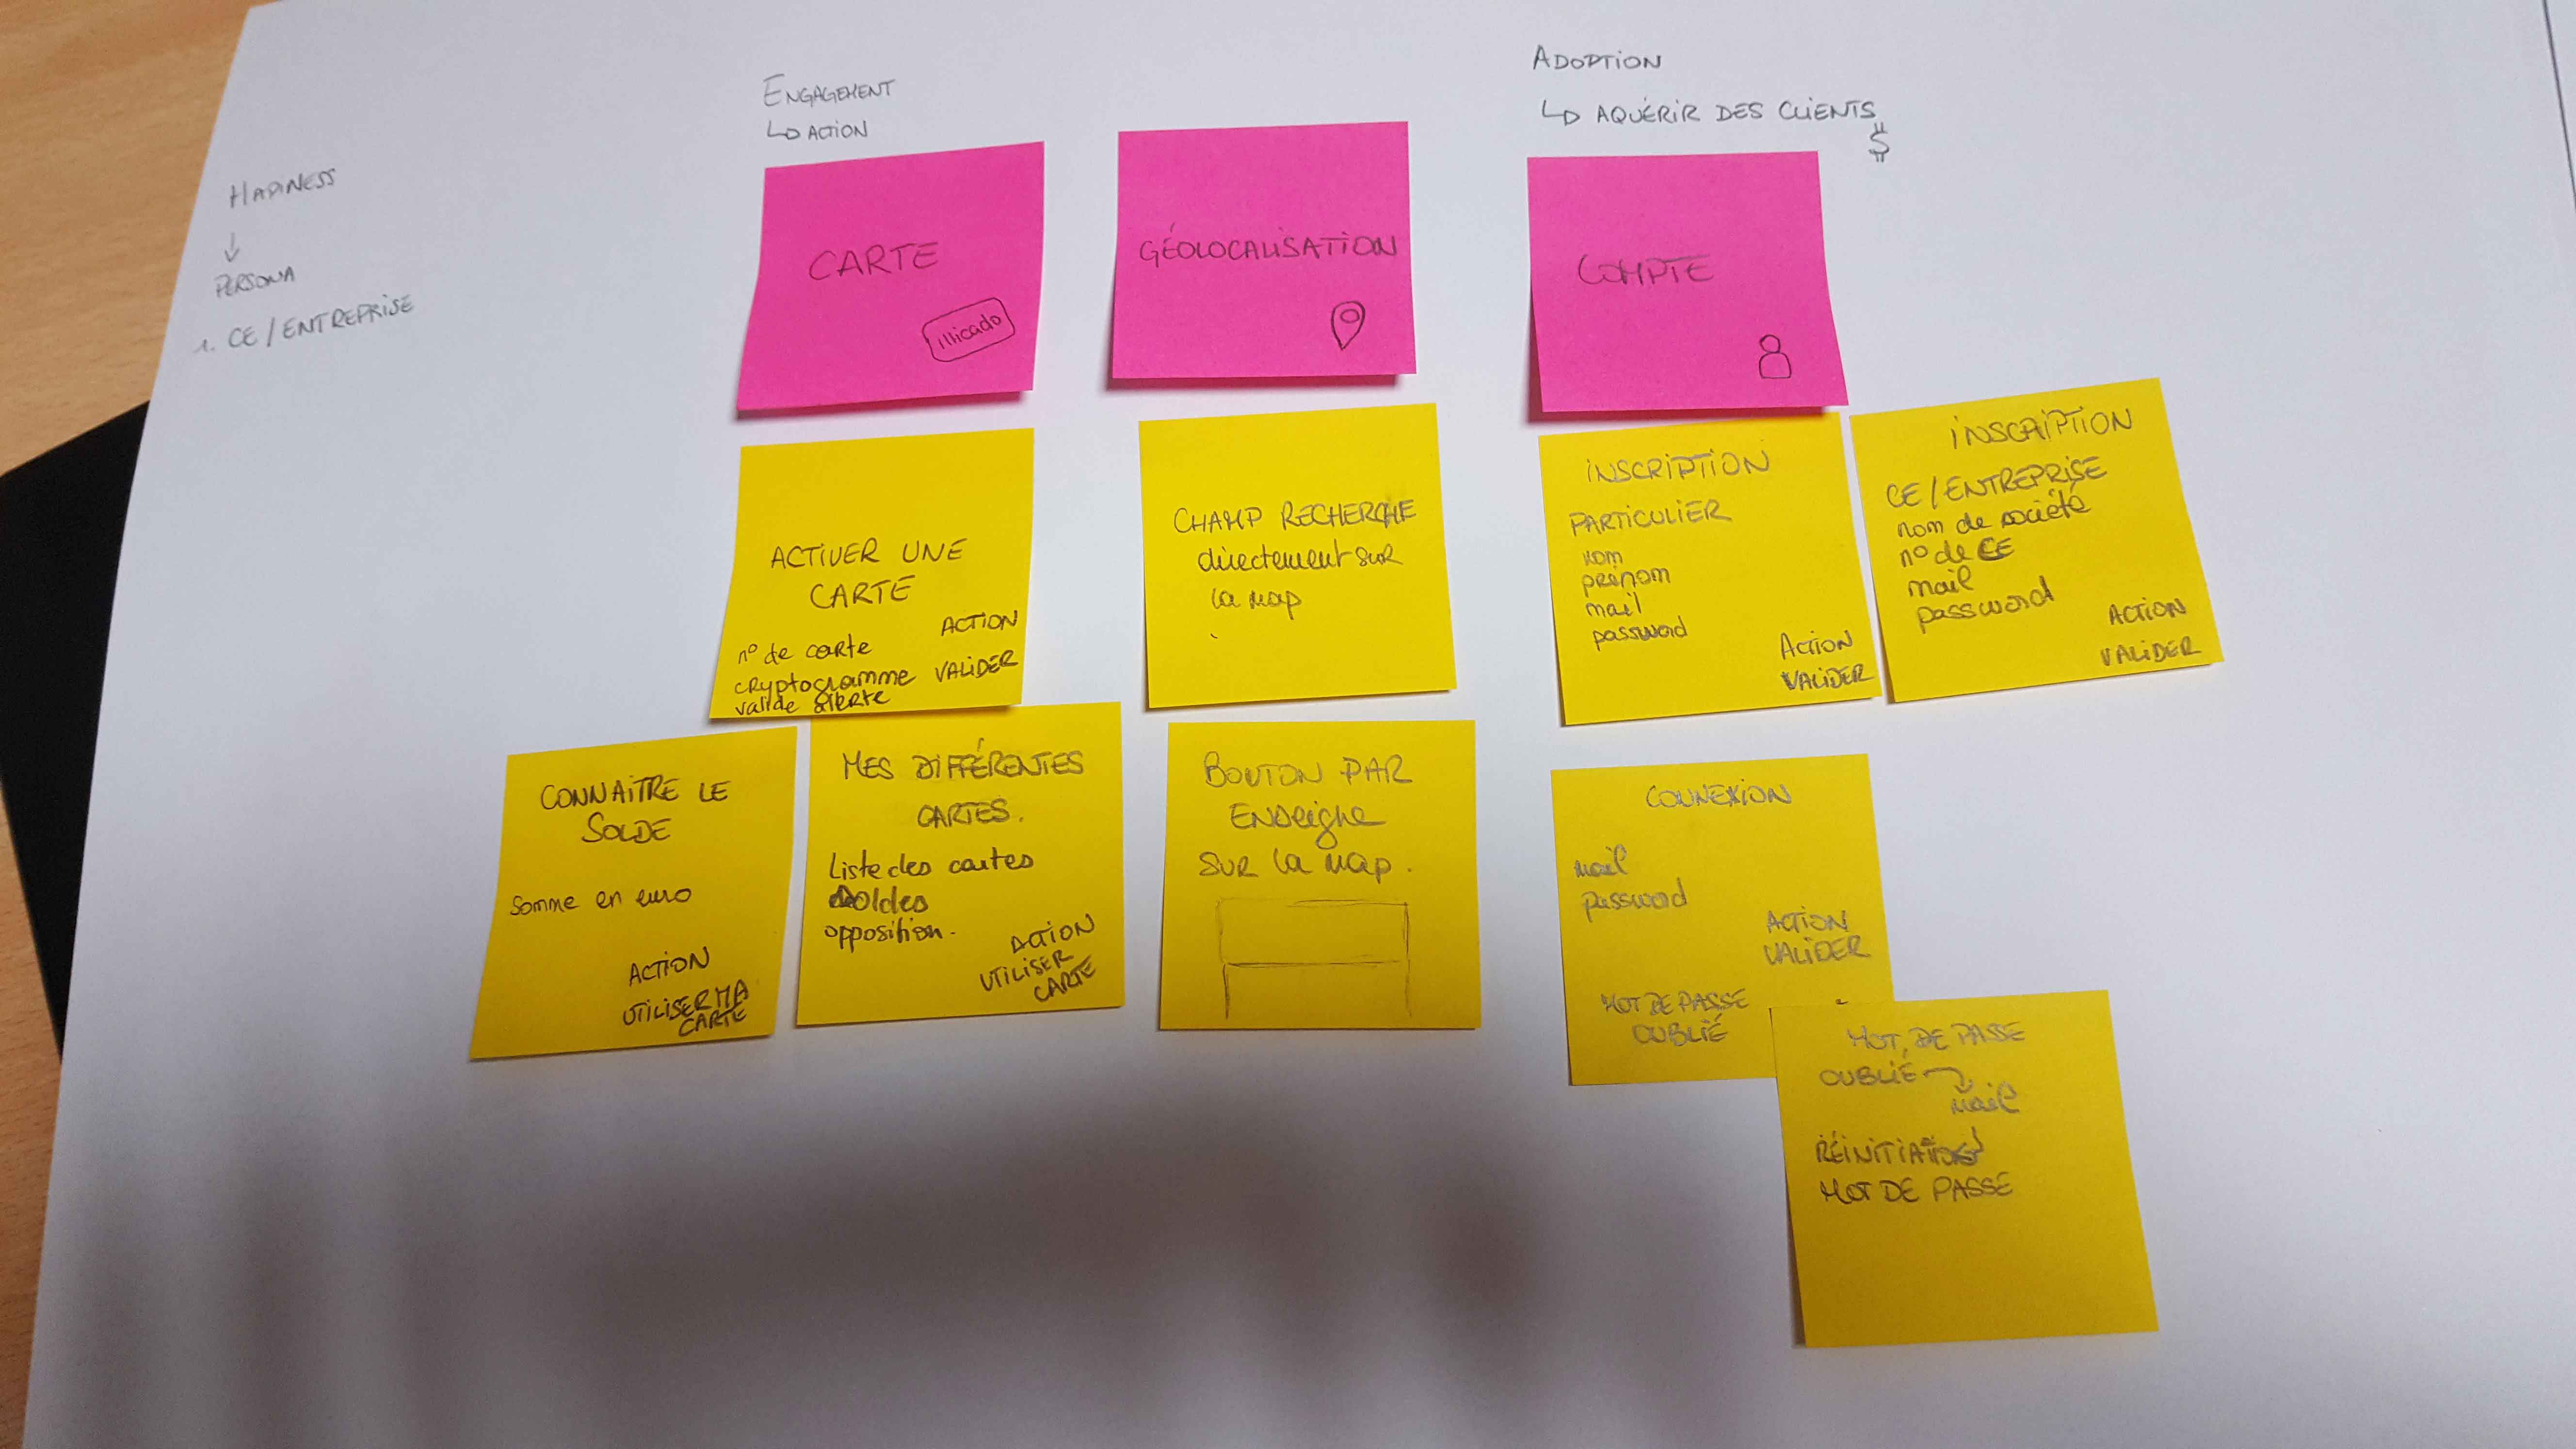 HAPINESS
↓
PERSONA
1. CE / ENTREPRISE
ENGAGEMENT
↳ ACTION
ADOPTION
↳ AQUÉRIR DES CLIENTS
$
CARTE
illicado
GÉOLOCALISATION
COMPTE
ACTIVER UNE
CARTE
ACTION
n° de carte
cryptogramme VALIDER
valide
CONNAITRE LE
SOLDE
Somme en euro
ACTION
UTILISER MA
CARTE
MES DIFFÉRENTES
CARTES.
Liste des cartes
soldes
opposition.
ACTION
UTILISER
CARTE
CHAMP RECHERCHE
directement sur
la map
BOUTON PAR
Enseigne
SUR la map.
INSCRIPTION
PARTICULIER
nom
prénom
mail
password
ACTION
VALIDER
INSCRIPTION
CE / ENTREPRISE
nom de société
n° de CE
mail
password
ACTION
VALIDER
CONNEXION
mail
password
ACTION
VALIDER
MOT DE PASSE
OUBLIÉ
MOT DE PASSE
OUBLIÉ
mail
MOT DE PASSE